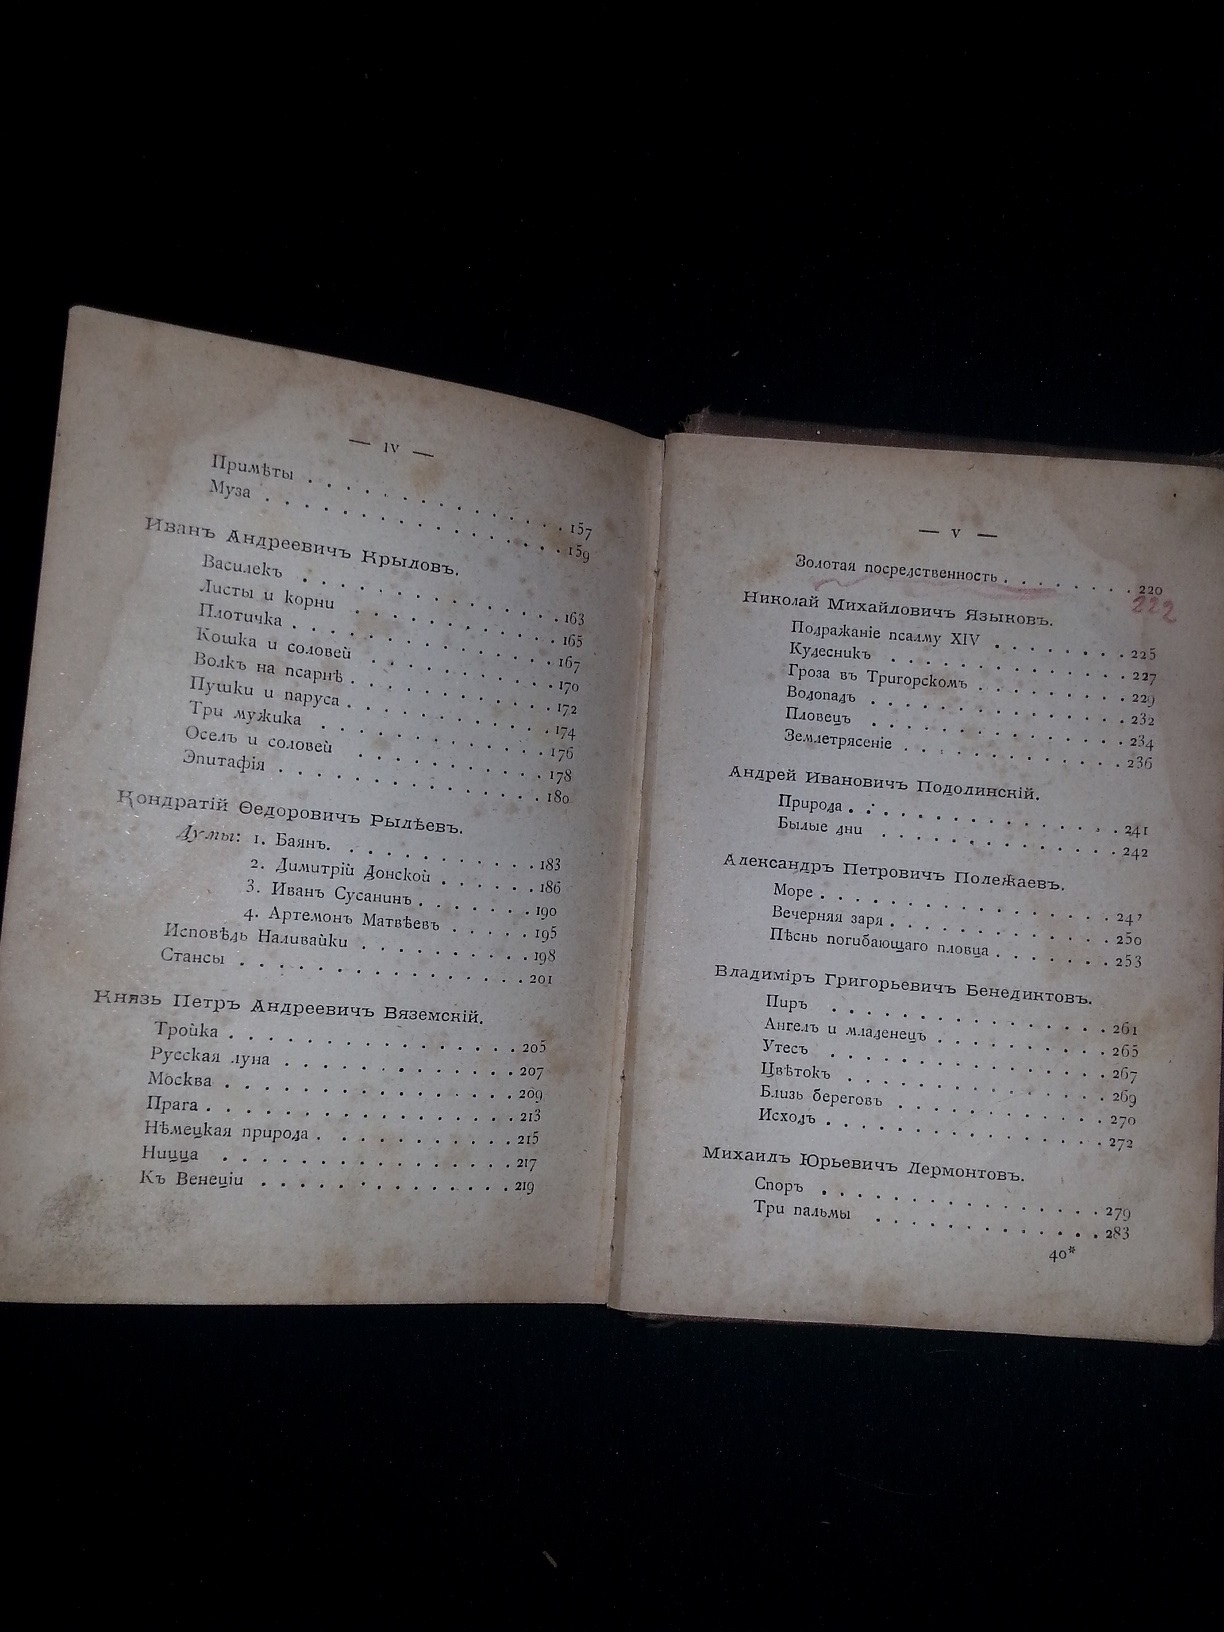 — IV —
Примѣты . . . . . . . . . . . . . 157
Муза . . . . . . . . . . . . . . . 159
Иванъ Андреевичъ Крыловъ.
Василекъ . . . . . . . . . . . . . 163
Листы и корни . . . . . . . . . . 165
Плотичка . . . . . . . . . . . . . 167
Кошка и соловей . . . . . . . . . 170
Волкъ на псарнѣ . . . . . . . . . 172
Пушки и паруса . . . . . . . . . . 174
Три мужика . . . . . . . . . . . . 176
Оселъ и соловей . . . . . . . . . 178
Эпитафія . . . . . . . . . . . . . 180
Кондратій Ѳедоровичъ Рылѣевъ.
Думы: 1. Баянъ. . . . . . . . . . 183
2. Димитрій Донской . . . . . 186
3. Иванъ Сусанинъ . . . . . . 190
4. Артемонъ Матвѣевъ . . . . . 195
Исповѣдь Наливайки . . . . . . . . 198
Стансы . . . . . . . . . . . . . . 201
Князь Петръ Андреевичъ Вяземскій.
Тройка . . . . . . . . . . . . . . 205
Русская луна . . . . . . . . . . . 207
Москва . . . . . . . . . . . . . . 209
Прага . . . . . . . . . . . . . . 213
Нѣмецкая природа . . . . . . . . . 215
Ницца . . . . . . . . . . . . . . 217
Къ Венеціи . . . . . . . . . . . . 219
— V —
Золотая посредственность . . . . . . . 220
222
Николай Михайловичъ Языковъ.
Подражаніе псалму XIV . . . . . . . 225
Кудесникъ . . . . . . . . . . . . 227
Гроза въ Тригорскомъ . . . . . . . 229
Водопадъ . . . . . . . . . . . . . 232
Пловецъ . . . . . . . . . . . . . 234
Землетрясеніе . . . . . . . . . . 236
Андрей Ивановичъ Подолинскій.
Природа . . . . . . . . . . . . . 241
Былые дни . . . . . . . . . . . . 242
Александръ Петровичъ Полежаевъ.
Море . . . . . . . . . . . . . . . 247
Вечерняя заря . . . . . . . . . . 250
Пѣснь погибающаго пловца . . . . . . 253
Владиміръ Григорьевичъ Бенедиктовъ.
Пиръ . . . . . . . . . . . . . . . 261
Ангелъ и младенецъ . . . . . . . . 265
Утесъ . . . . . . . . . . . . . . 267
Цвѣтокъ . . . . . . . . . . . . . 269
Близь береговъ . . . . . . . . . . 270
Исходъ . . . . . . . . . . . . . . 272
Михаилъ Юрьевичъ Лермонтовъ.
Споръ . . . . . . . . . . . . . . 279
Три пальмы . . . . . . . . . . . . 283
40*